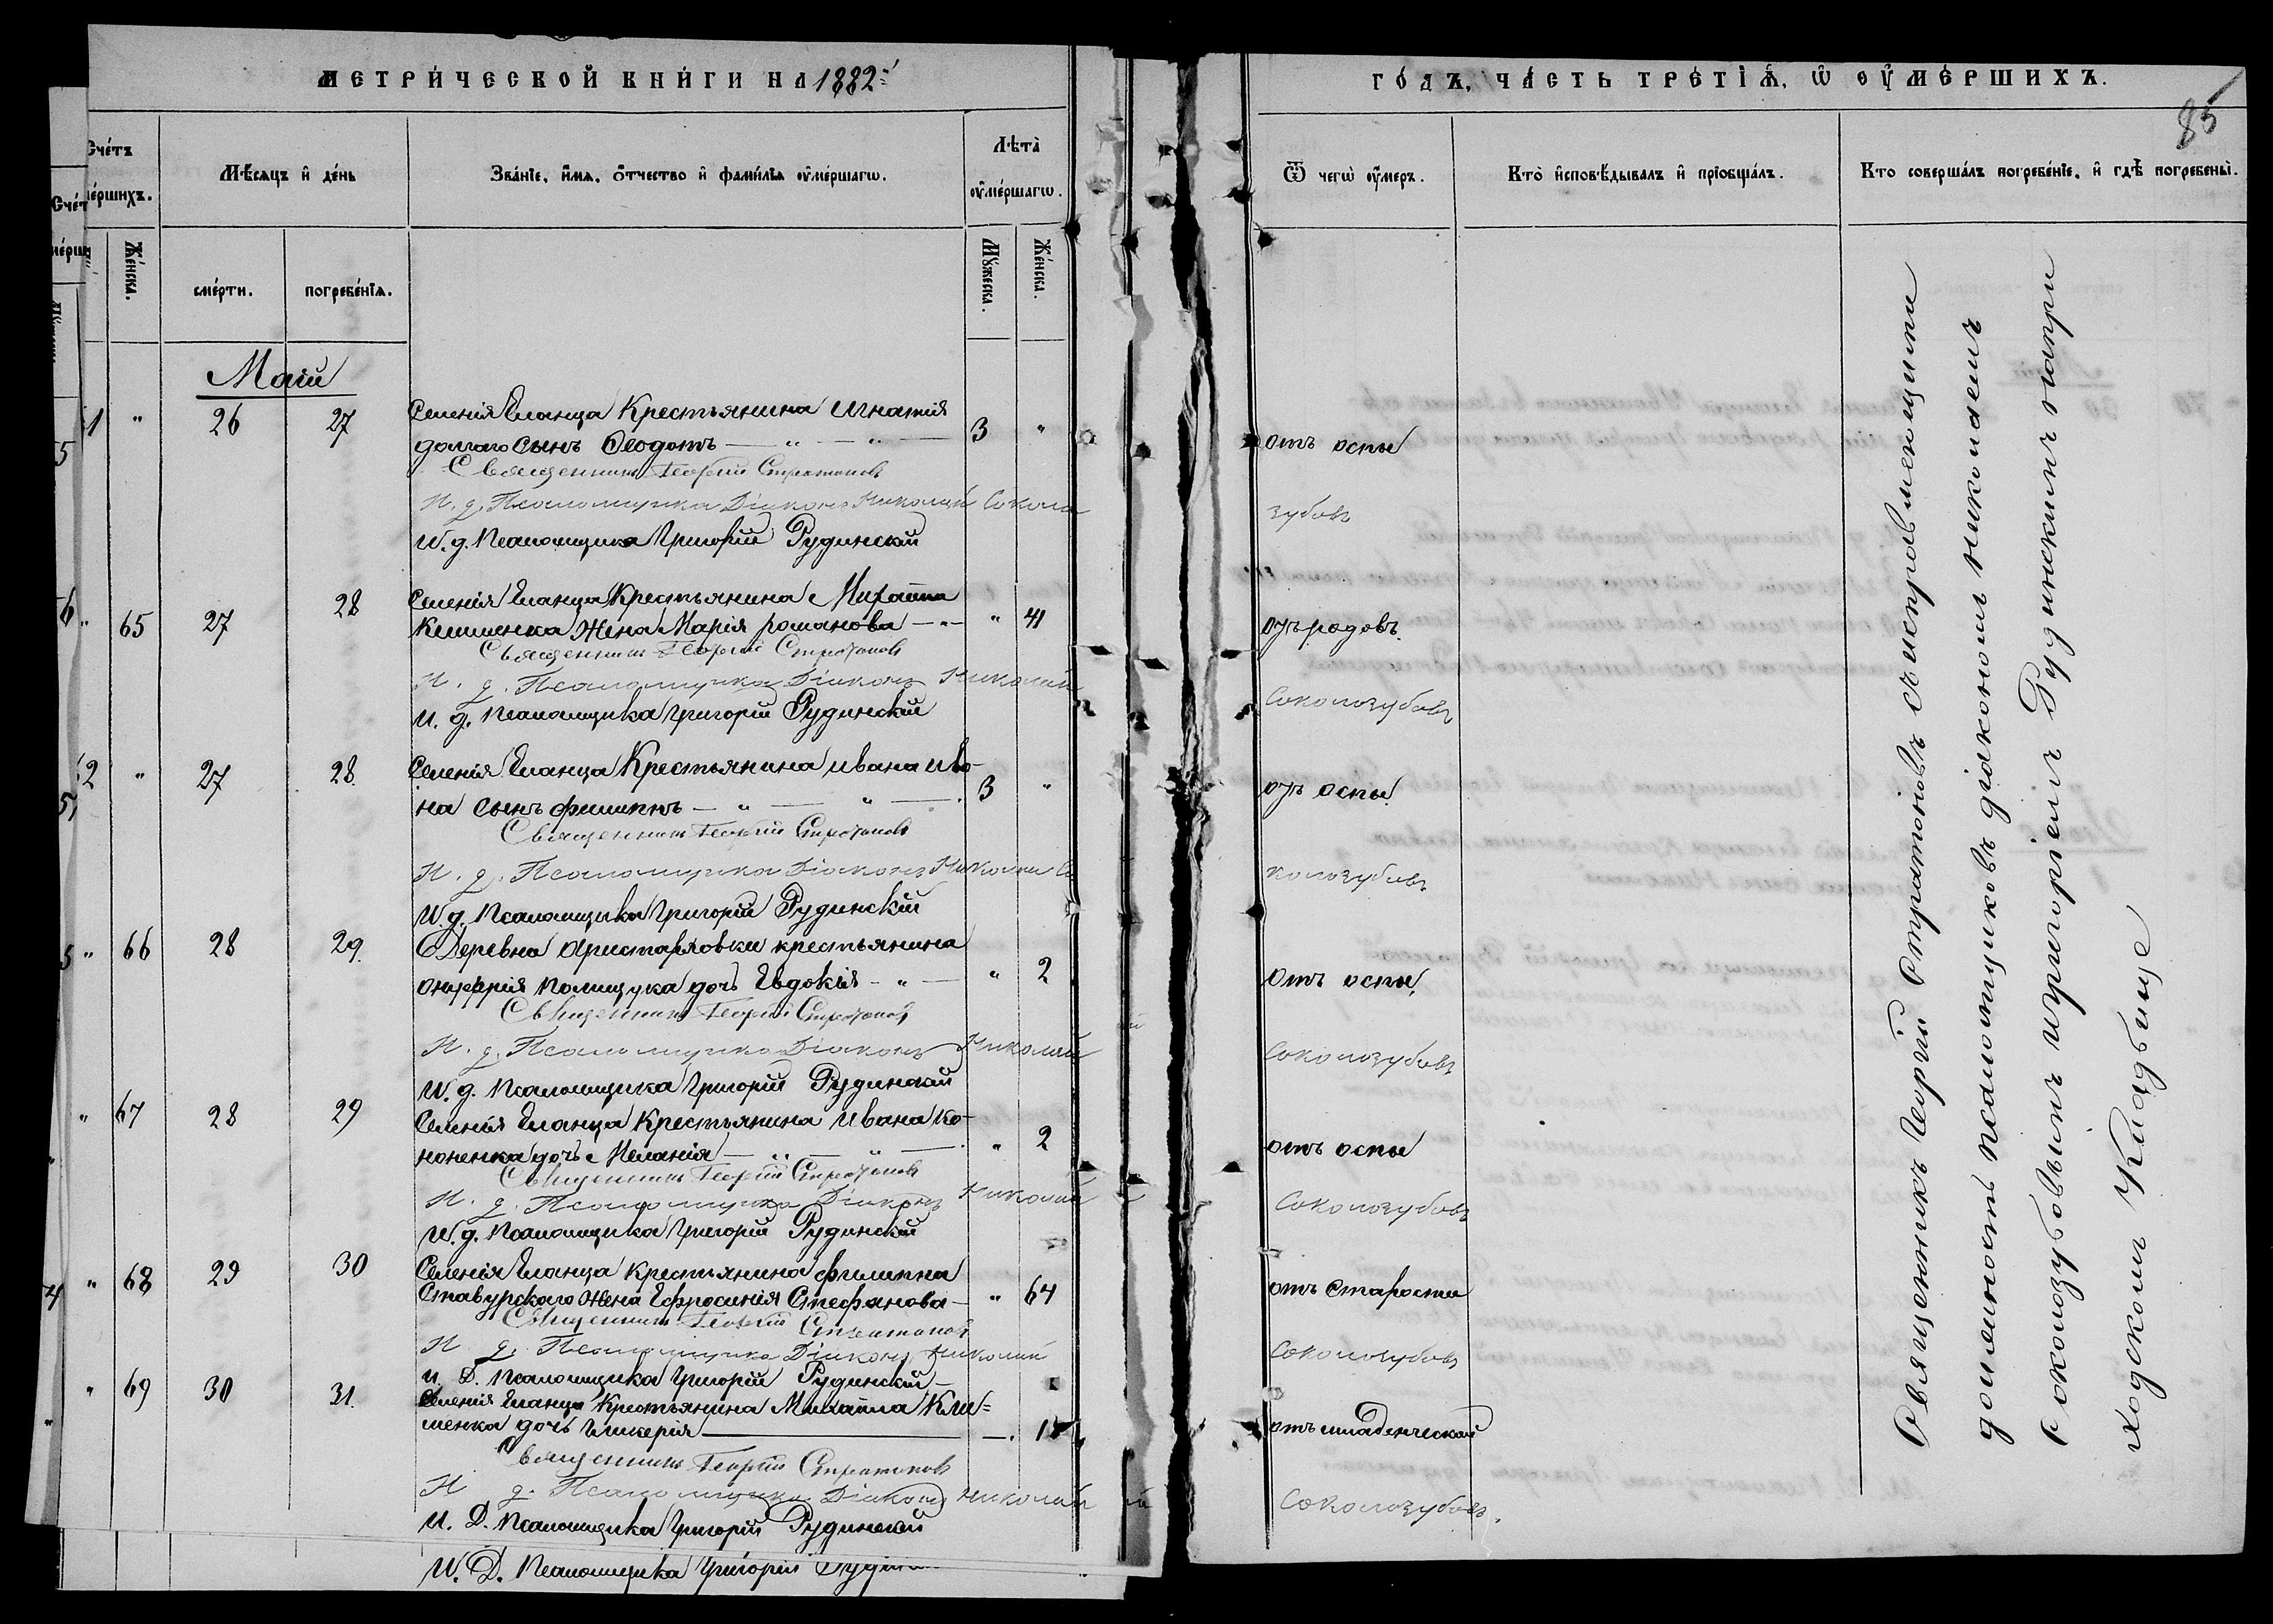 МЕТРИ́ЧЕСКОЙ КНИ́ГИ НА 1882
ГО́ДЪ, ЧА́СТЬ ТРЕ́ТІѦ, Ѽ ОУ҆МЕ́РШИХЪ.
85
Сче́тъ
ме́ршихъ.
Мѣ́сѧцъ и҆ де́нь
Зва́нїе, и҆́мѧ, ѻ҆́тчество и҆ фами́лїѧ оу҆ме́ршагѡ.
Лѣ́та
оу҆ме́ршагѡ.
Ѿ чегѡ̀ оу҆́меръ.
Кто̀ и҆сповѣ́дывалъ и҆ прїобща́лъ.
Кто соверша́лъ погребе́нїе, и҆ гдѣ̀ погребены̀.
Же́нска.
сме́рти.
погребе́нїѧ.
Мꙋ́жеска.
Же́нска.
Маій
1 " 26 27 Селенія Еланца Крестьянина Игнатія
долгаго сынъ Ѳеодотъ — " — " — 3 " отъ оспы
Священникъ Георгій Стратоновъ
И. д. Псаломщика Діаконъ Николай Соколозубовъ
И. д. Псаломщика Григорій Рудинскій
" 65 27 28 Селенія Еланца Крестьянина Михаила
Клименка жена Марія романова — " — " 41 отъ родовъ.
Священникъ Георгій Стратоновъ
И. д. Псаломщика Діаконъ Николай Соколозубовъ
И. д. Псаломщика Григорій Рудинскій
2 " 27 28. Селенія Еланца Крестьянина ивана ива-
на сынъ филиппъ — " — " — 3 " отъ оспы.
Священникъ Георгій Стратоновъ
И. д. Псаломщика Діаконъ Николай Соколозубовъ
И. д. Псаломщика Григорій Рудинскій
" 66 28 29. Деревна Аристарховки крестьянина
онуфрія полищука дочь Евдокія - " — " 2 отъ оспы,
Священникъ Георгій Стратоновъ
И. д. Псаломщика Діаконъ Николай Соколозубовъ
И. д. Псаломщика Григорій Рудинскій
" 67 28 29 Селенія Еланца Крестьянина Ивана ко-
ноненка дочь Меланія — " — " — " 2 отъ оспы
Священникъ Георгій Стратоновъ
И. д. Псаломщика Діаконъ Николай Соколозубовъ
И. д. Псаломщика Григорій Рудинскій
" 68 29 30 Селенія Еланца крестьянина филиппа
Ставурскаго жена Ефросинія Стефанова — " 64 отъ старости
Священникъ Георгій Стратоновъ
И. д. Псаломщика Діаконъ Николай Соколозубовъ
И. Д. Псаломщика Григорій Рудинскій —
" 69 30 31. Селенія Еланца Крестьянина Михаила Кли=
менка дочь Гликерія — 1 отъ младенческой
Священникъ Георгій Стратоновъ
И д. Псаломщика Діаконъ Николай Соколозубовъ.
И. Д. Псаломщика Григорій Рудинскій
И. Д. Псаломщика Григорій
Священникъ Георгій Стратоновъ съ исправляющими
должность псаломщиковъ діакономъ николаемъ
Соколозубовымъ и григоріемъ Рудинскимъ на при
ходскомъ Кладбище